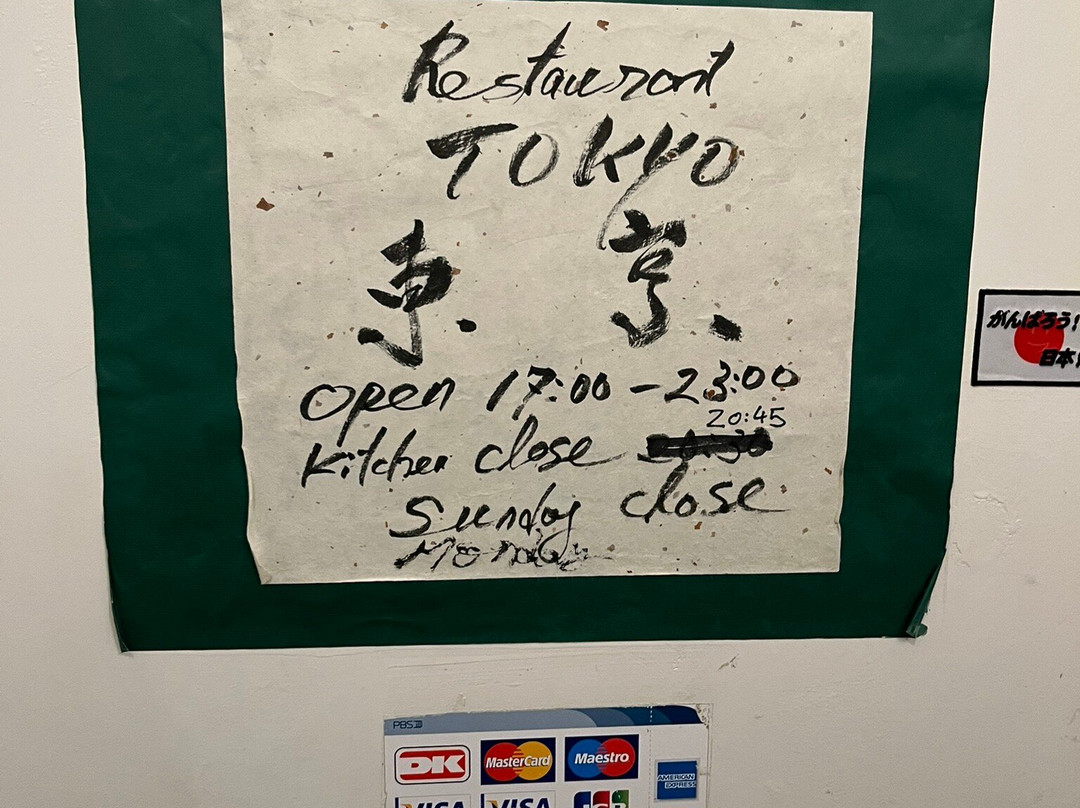 Restaurant
TOKYO
東京
open 17:00 - 23:00
20:45
Kitchen close
Sunday close
Monday
がんばろう!
日本!
PBS
DK MasterCard Maestro
AMERICAN EXPRESS
VISA VISA JCB